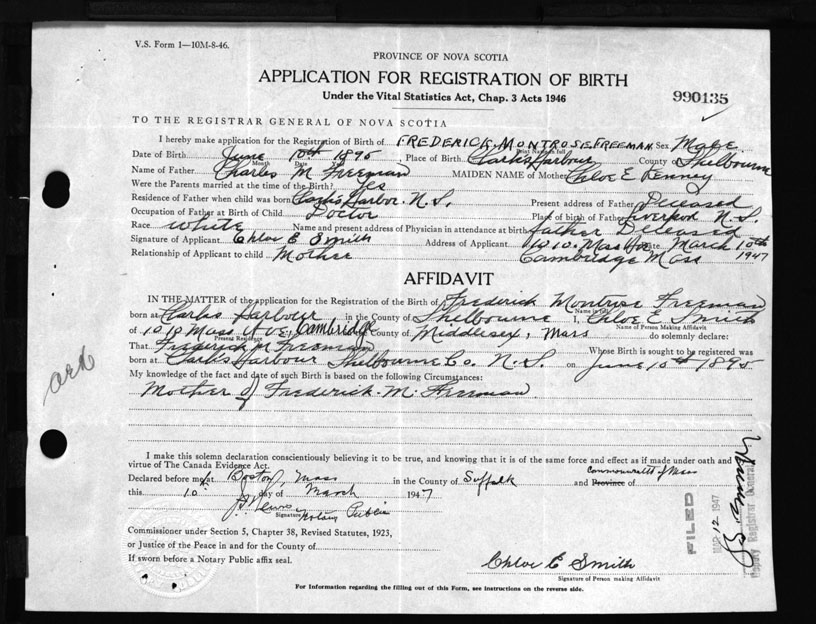 V.S. Form 1—10M-8-46.
PROVINCE OF NOVA SCOTIA
APPLICATION FOR REGISTRATION OF BIRTH
Under the Vital Statistics Act, Chap. 3 Acts 1946
990135
TO THE REGISTRAR GENERAL OF NOVA SCOTIA
I hereby make application for the Registration of Birth of FREDERICK MONTROSE FREEMAN Sex Male
Print Name in full
Date of Birth June 10th 1895 Place of Birth Clarks Harbour County of Shelbourne
Month Date Year
Name of Father Charles M Freeman MAIDEN NAME of Mother Chloe E Penney
Were the Parents married at the time of the Birth? Yes
Residence of Father when child was born Clarks Harbor N.S. Present address of Father Deceased
Occupation of Father at Birth of Child Doctor Place of birth of Father Liverpool N.S.
Race White Name and present address of Physician in attendance at birth Father Deceased
Signature of Applicant Chloe E Smith Address of Applicant 1010 Mass Ave Date March 10th
Relationship of Applicant to child Mother Cambridge Mass 1947
AFFIDAVIT
IN THE MATTER of the application for the Registration of the Birth of Frederick Montrose Freeman
Name in full
born at Clarks Harbour in the County of Shelbourne I, Chloe E Smith
Name of Person Making Affidavit
of 1010 Mass Ave, Cambridge County of Middlesex, Mass do solemnly declare:
Present Residence
That Frederick M Freeman Whose Birth is sought to be registered was
born at Clarks Harbour Shelbourne Co. N.S. on June 10th 1895
My knowledge of the fact and date of such Birth is based on the following Circumstances:
Mother of Frederick M. Freeman
I make this solemn declaration conscientiously believing it to be true, and knowing that it is of the same force and effect as if made under oath and by
virtue of The Canada Evidence Act.
Declared before me at Boston, Mass in the County of Suffolk and Province of Commonwealth of Mass
this 10th day of March 1947
Signature Notary Public
Commissioner under Section 5, Chapter 38, Revised Statutes, 1923,
or Justice of the Peace in and for the County of
If sworn before a Notary Public affix seal.
Chloe E Smith
Signature of Person making Affidavit
For Information regarding the filling out of this Form, see instructions on the reverse side.
FILED
MAR 12 1947
Deputy Registrar General